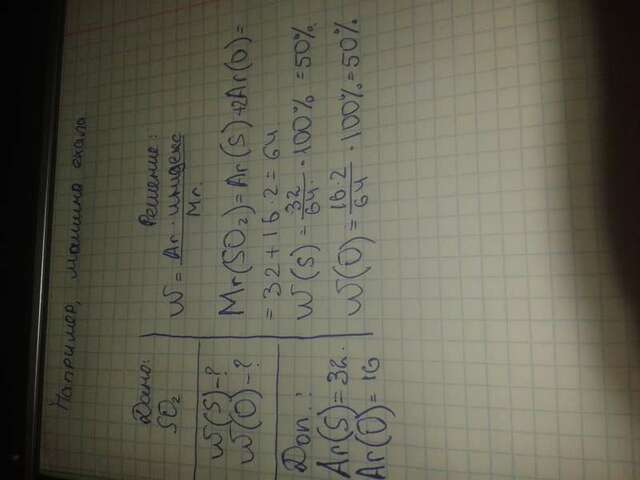 Например, машина ехала
Дано:
SO₂
W(S)-?
W(O)-?
Доп.:
Ar(S)=32.
Ar(O)=16
Решение:
W = Ar · индекс / Mr.
Mr(SO₂)=Ar(S)+2Ar(O)=
=32+16·2=64
W(S)=32/64·100% =50%.
W(O)=16·2/64·100%=50%